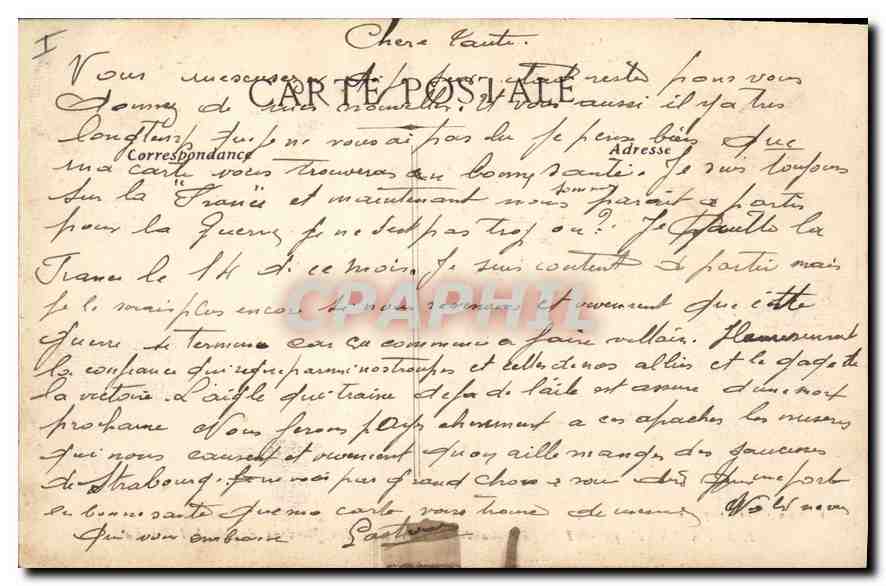 I
Chere tante.
CARTE POSTALE
Vous m'excuserez si je suis resté sans vous
donner de mes nouvelles. Et vous aussi il y a tres
longtemp que je ne vous ai pas lu Je pense bien que
Correspondance
Adresse
ma carte vous trouveras en bonne santé. Je suis toujours
sur la "France" et maintenant nous parait a partir
pour la Guerre je ne sait pas trop ou? Je quitte la
France le 14 de ce mois. Je suis content de partir mais
je le serais plus encore si nous revenons et vivement que cette
guerre se termine car ça commence a faire villain. Heureusement
la confiance qui regne parmi nos troupes et celles de nos alliés et le gage de
la victoire. L'aigle qui traine deja de l'aile est assuré d'une mort
prochaine Nous ferons payer cherement a ces apaches les miseres
qui nous causent et vivement qu'on aille manger des saucisses
de Strabourg. Je ne vois pas grand chose a vous dire
en bonne santé que ma carte vous trouve de meme
qui vous embrasse Gaston
CPAPHIL